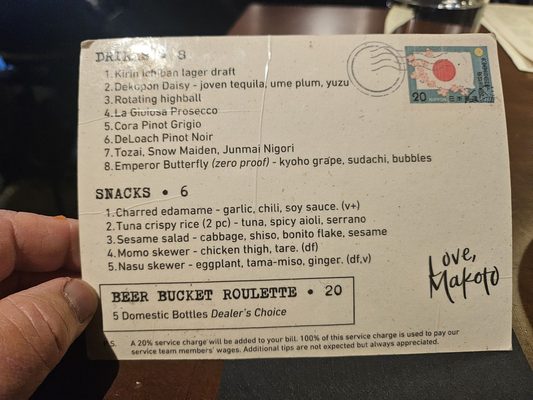 DRINKS • 8
1. Kirin ichiban lager draft
2. Dekopon Daisy - joven tequila, ume plum, yuzu
3. Rotating highball
4. La Gioiosa Prosecco
5. Cora Pinot Grigio
6. DeLoach Pinot Noir
7. Tozai, Snow Maiden, Junmai Nigori
8. Emperor Butterfly (zero proof) - kyoho grape, sudachi, bubbles
20
SNACKS • 6
1. Charred edamame - garlic, chili, soy sauce. (v+)
2. Tuna crispy rice (2 pc) - tuna, spicy aioli, serrano
3. Sesame salad - cabbage, shiso, bonito flake, sesame
4. Momo skewer - chicken thigh, tare. (df)
5. Nasu skewer - eggplant, tama-miso, ginger. (df,v)
Love,
Makoto
BEER BUCKET ROULETTE • 20
5 Domestic Bottles Dealer's Choice
P.S. A 20% service charge will be added to your bill. 100% of this service charge is used to pay our
service team members' wages. Additional tips are not expected but always appreciated.